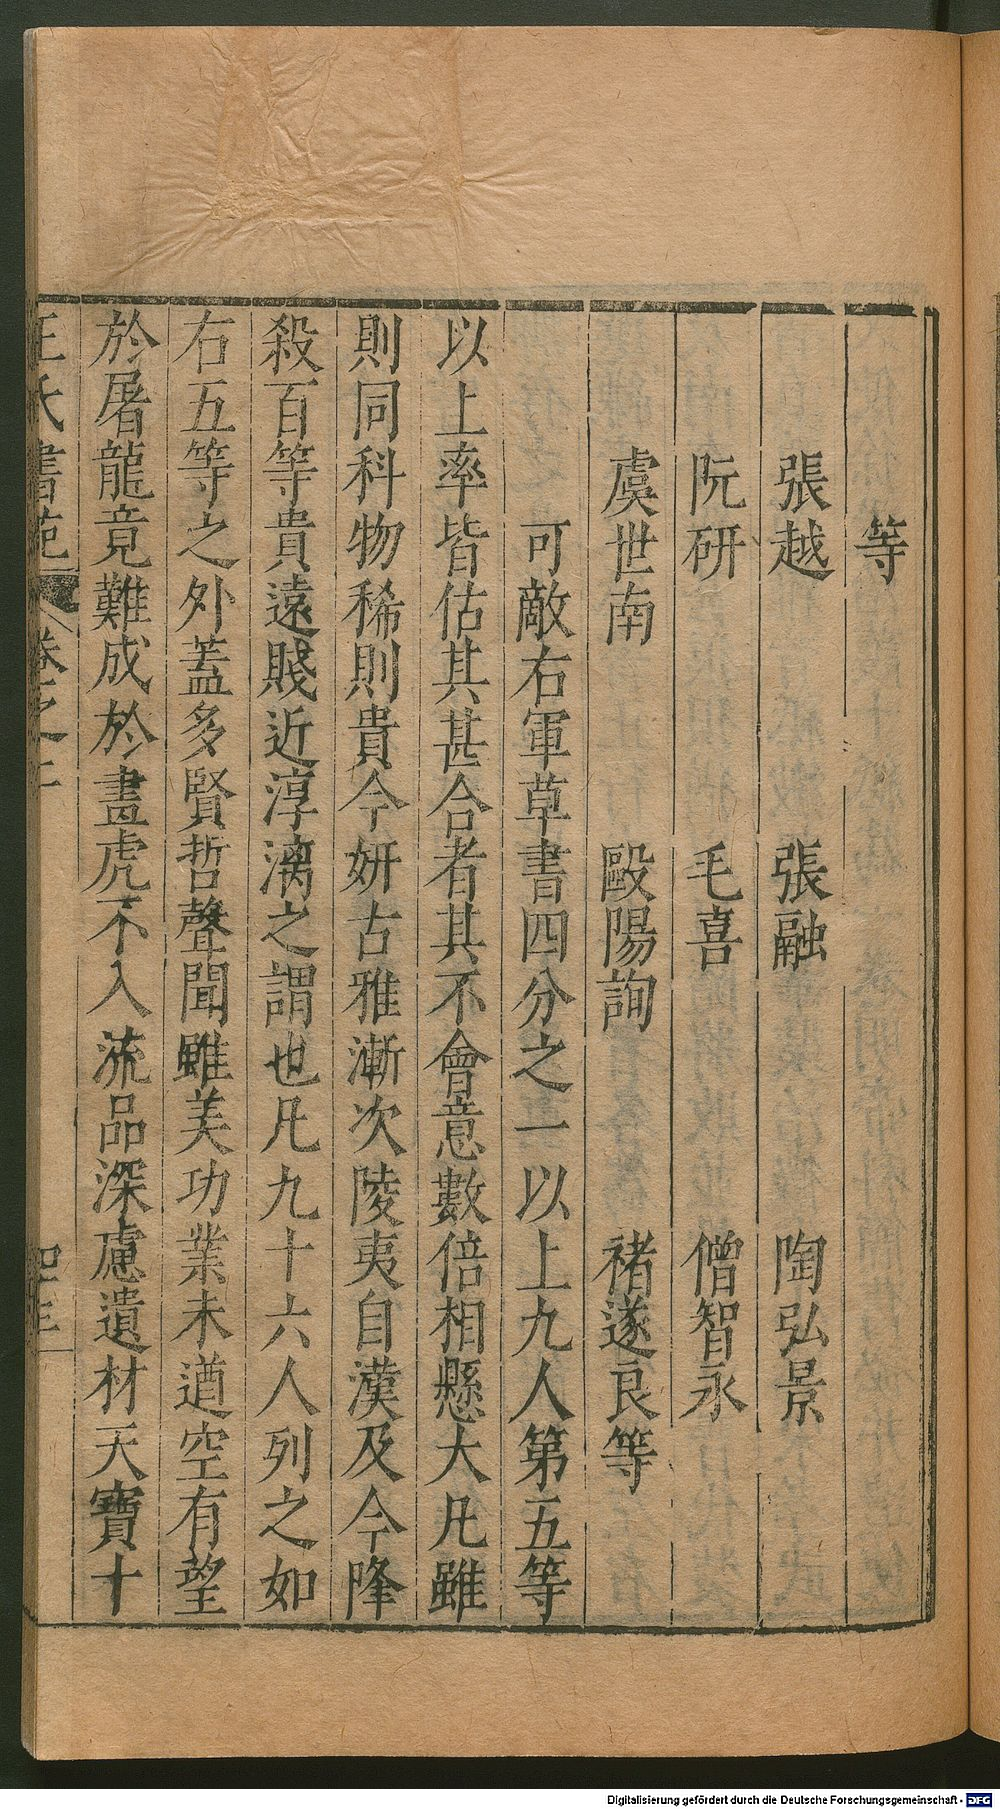 等
張越 張融 陶弘景
阮研 毛喜 僧智永
虞世南 毆陽詢 褚遂良等
可敵右軍草書四分之一以上九人第五等
以上率皆估其甚合者其不會意數倍相懸大凡雖
則同科物稀則貴今妍古雅漸次陵夷自漢及今隆
殺百等貴遠賤近淳漓之謂也凡九十六人列之如
右五等之外蓋多賢哲聲聞雖美功業未遒空有望
於屠龍竟難成於畫虎不入流品深慮遺材天寶十
王氏書苑 卷之二
Digitalisierung gefördert durch die Deutsche Forschungsgemeinschaft - DFG